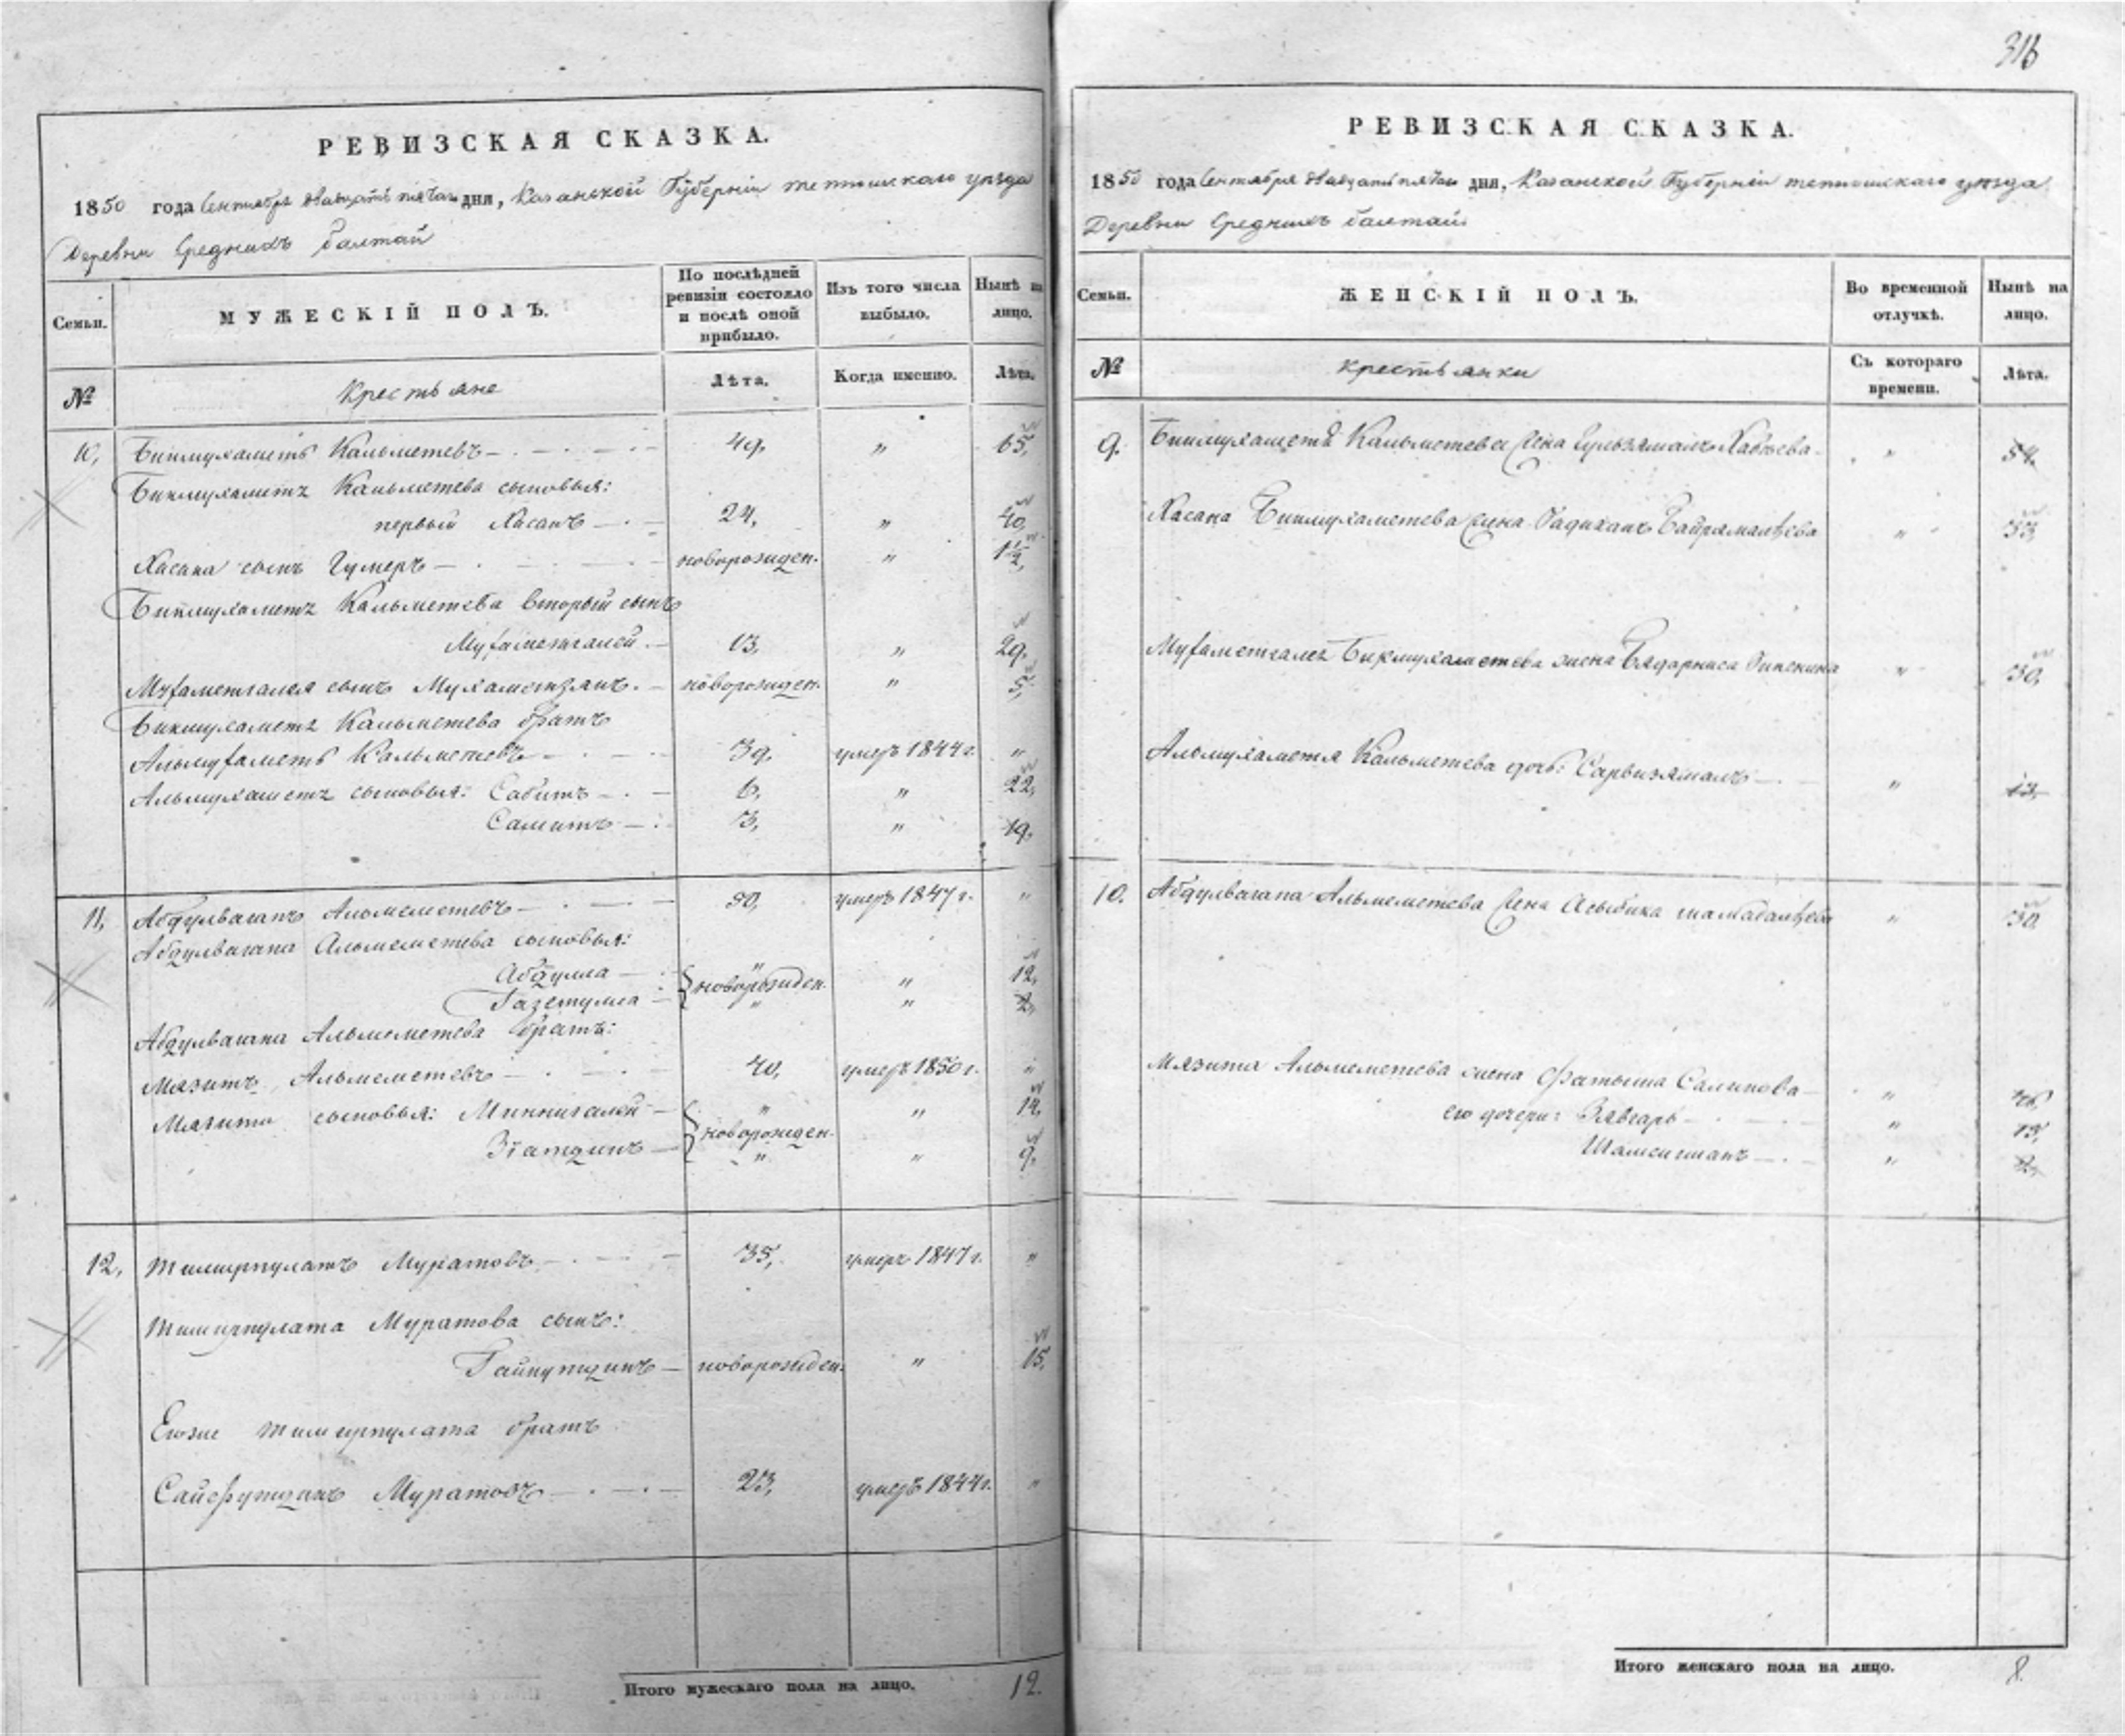 РЕВИЗСКАЯ СКАЗКА.
1850 года Сентября двадцать пятаго дня, Казанской Губерніи тетюшскаго уѣзда
Деревни Среднихъ балтай
Семьи.
МУЖЕСКІЙ ПОЛЪ.
По послѣдней ревизіи состояло и послѣ оной прибыло.
Изъ того числа выбыло.
Нынѣ на лицо.
№
Крестьяне
Лѣта.
Когда именно.
Лѣта.
10, Бикмухаметъ Кальметевъ 49, " 65,
Бикмухаметя Кальметева сыновья:
первый Хасанъ 24, " 40,
Хасана сынъ Гумеръ новорожден. " 1½,
Бикмухаметя Кальметева вторый сынъ
Мухаметгалей 13, " 29,
Мухаметгалея сынъ Мухаметзянъ новорожден. " 5,
Бикмухаметя Кальметева братъ
Альмухаметъ Кальметевъ 39, умеръ 1844 г. "
Альмухаметя сыновья: Сабитъ 6, " 22,
Самитъ 3, " 19,
11, Абдулвагапъ Альмеметевъ умеръ 1847 г. "
Абдулвагапа Альмеметева сыновья:
Абдулла " " 12,
новорожден.
Газетулла " " 2,
Абдулвагапа Альмеметева братъ:
Мязитъ Альмеметевъ 40, умеръ 1850 г. "
Мязита сыновья: Миннигалей " " 14,
новорожден.
Зіатдинъ " " 9,
12, Тимирпулатъ Муратовъ 35, умеръ 1847 г. "
Тимирпулата Муратова сынъ:
Гайнутдинъ новорожден. " 15,
Егоже Тимирпулата братъ
Сайфутдинъ Муратовъ 23, умеръ 1844 г. "
Итого мужескаго пола на лицо. 12.
РЕВИЗСКАЯ СКАЗКА.
1850 года Сентября двадцать пятаго дня, Казанской Губерніи тетюшскаго уѣзда
Деревни Среднихъ балтай
Семьи.
ЖЕНСКІЙ ПОЛЪ.
Во временной отлучкѣ.
Нынѣ на лицо.
№
Крестьянки
Съ котораго времени.
Лѣта.
9. Бикмухаметя Кальметева жена Гульзямалъ " 54,
Хасана Бикмухаметева жена " 33,
Мухаметгалея Бикмухаметева жена " 30,
Альмухаметя Кальметева дочь: Сарвизямалъ " 13,
10. Абдулвагапа Альмеметева жена " 30,
Мязита Альмеметева жена Фатыма "
его дочери: "
" 2,
Итого женскаго пола на лицо. 8.